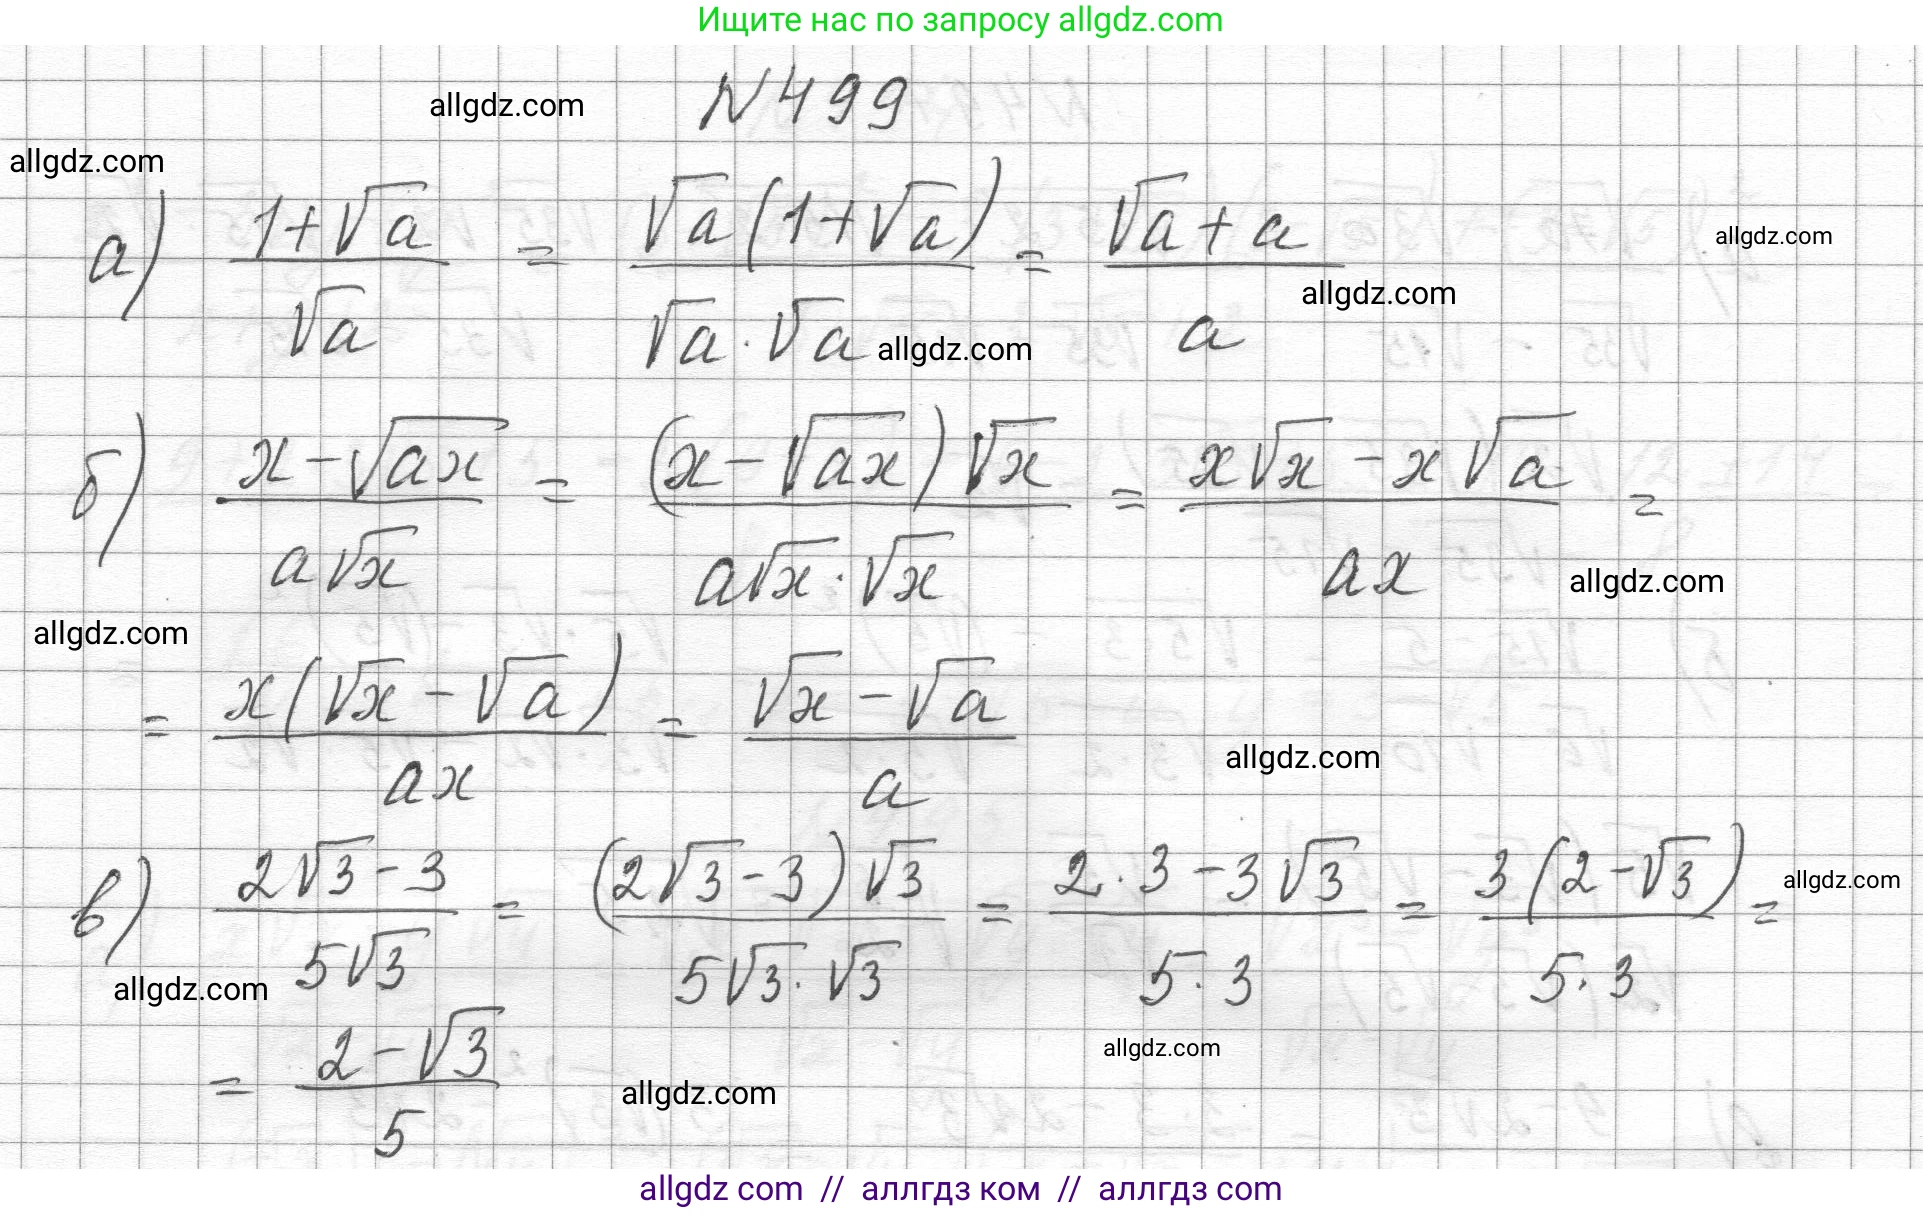 Ищите нас по запросу allgdz.com
N499
allgdz.com
allgdz.com
а) (1+√a)/(√a) = (√a(1+√a))/(√a·√a) = (√a+a)/a
allgdz.com
allgdz.com
allgdz.com
б) (x-√(ax))/(a√x) = ((x-√(ax))√x)/(a√x·√x) = (x√x-x√a)/(ax) =
allgdz.com
allgdz.com
= (x(√x-√a))/(ax) = (√x-√a)/a
allgdz.com
в) (2√3-3)/(5√3) = ((2√3-3)√3)/(5√3·√3) = (2·3-3√3)/(5·3) = (3(2-√3))/(5·3) =
allgdz.com
allgdz.com
= (2-√3)/5
allgdz.com
allgdz.com
allgdz com // аллгдз ком // аллгдз com